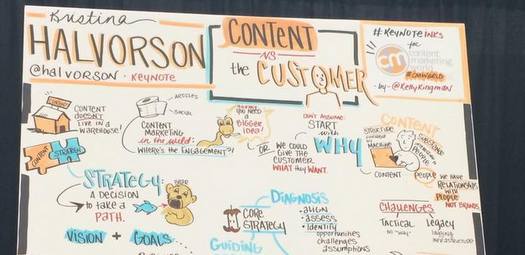 Kristina
HALVORSON
@halvorson · KEYNOTE
CONTENT
vs
the CUSTOMER
#KEYNOTEINKS
for
cm
content
marketing
world
#CMWORLD
- by - @KellyKingman
CONTENT
DOESN'T
LIVE IN A
WAREHOUSE!
ARTICLES
SOCIAL
CONTENT
MARKETING
in the wild:
WHERE'S THE ENGAGEMENT?!
YOU NEED
A
BIGGER
IDEA!
OR
WE COULD
GIVE THE
CUSTOMER
WHAT they WANT.
DON'T ASSUME:
START
with
WHY
CONTENT
STRUCTURE
MACHINE
SUBSTANCE
PEOPLE
CONTENT
PEOPLE
WE HAVE
RELATIONSHIPS
with
PEOPLE
NOT BRANDS
CONTENT
STRATEGY
?
STRATEGY:
A DECISION
to take a
PATH.
DIAGNOSIS
- ALIGN
- assess
- identify
opportunities
challenges
assumptions
CORE
STRATEGY
CHALLENGES
TACTICAL
LEGACY
VISION + GOALS
GUIDING